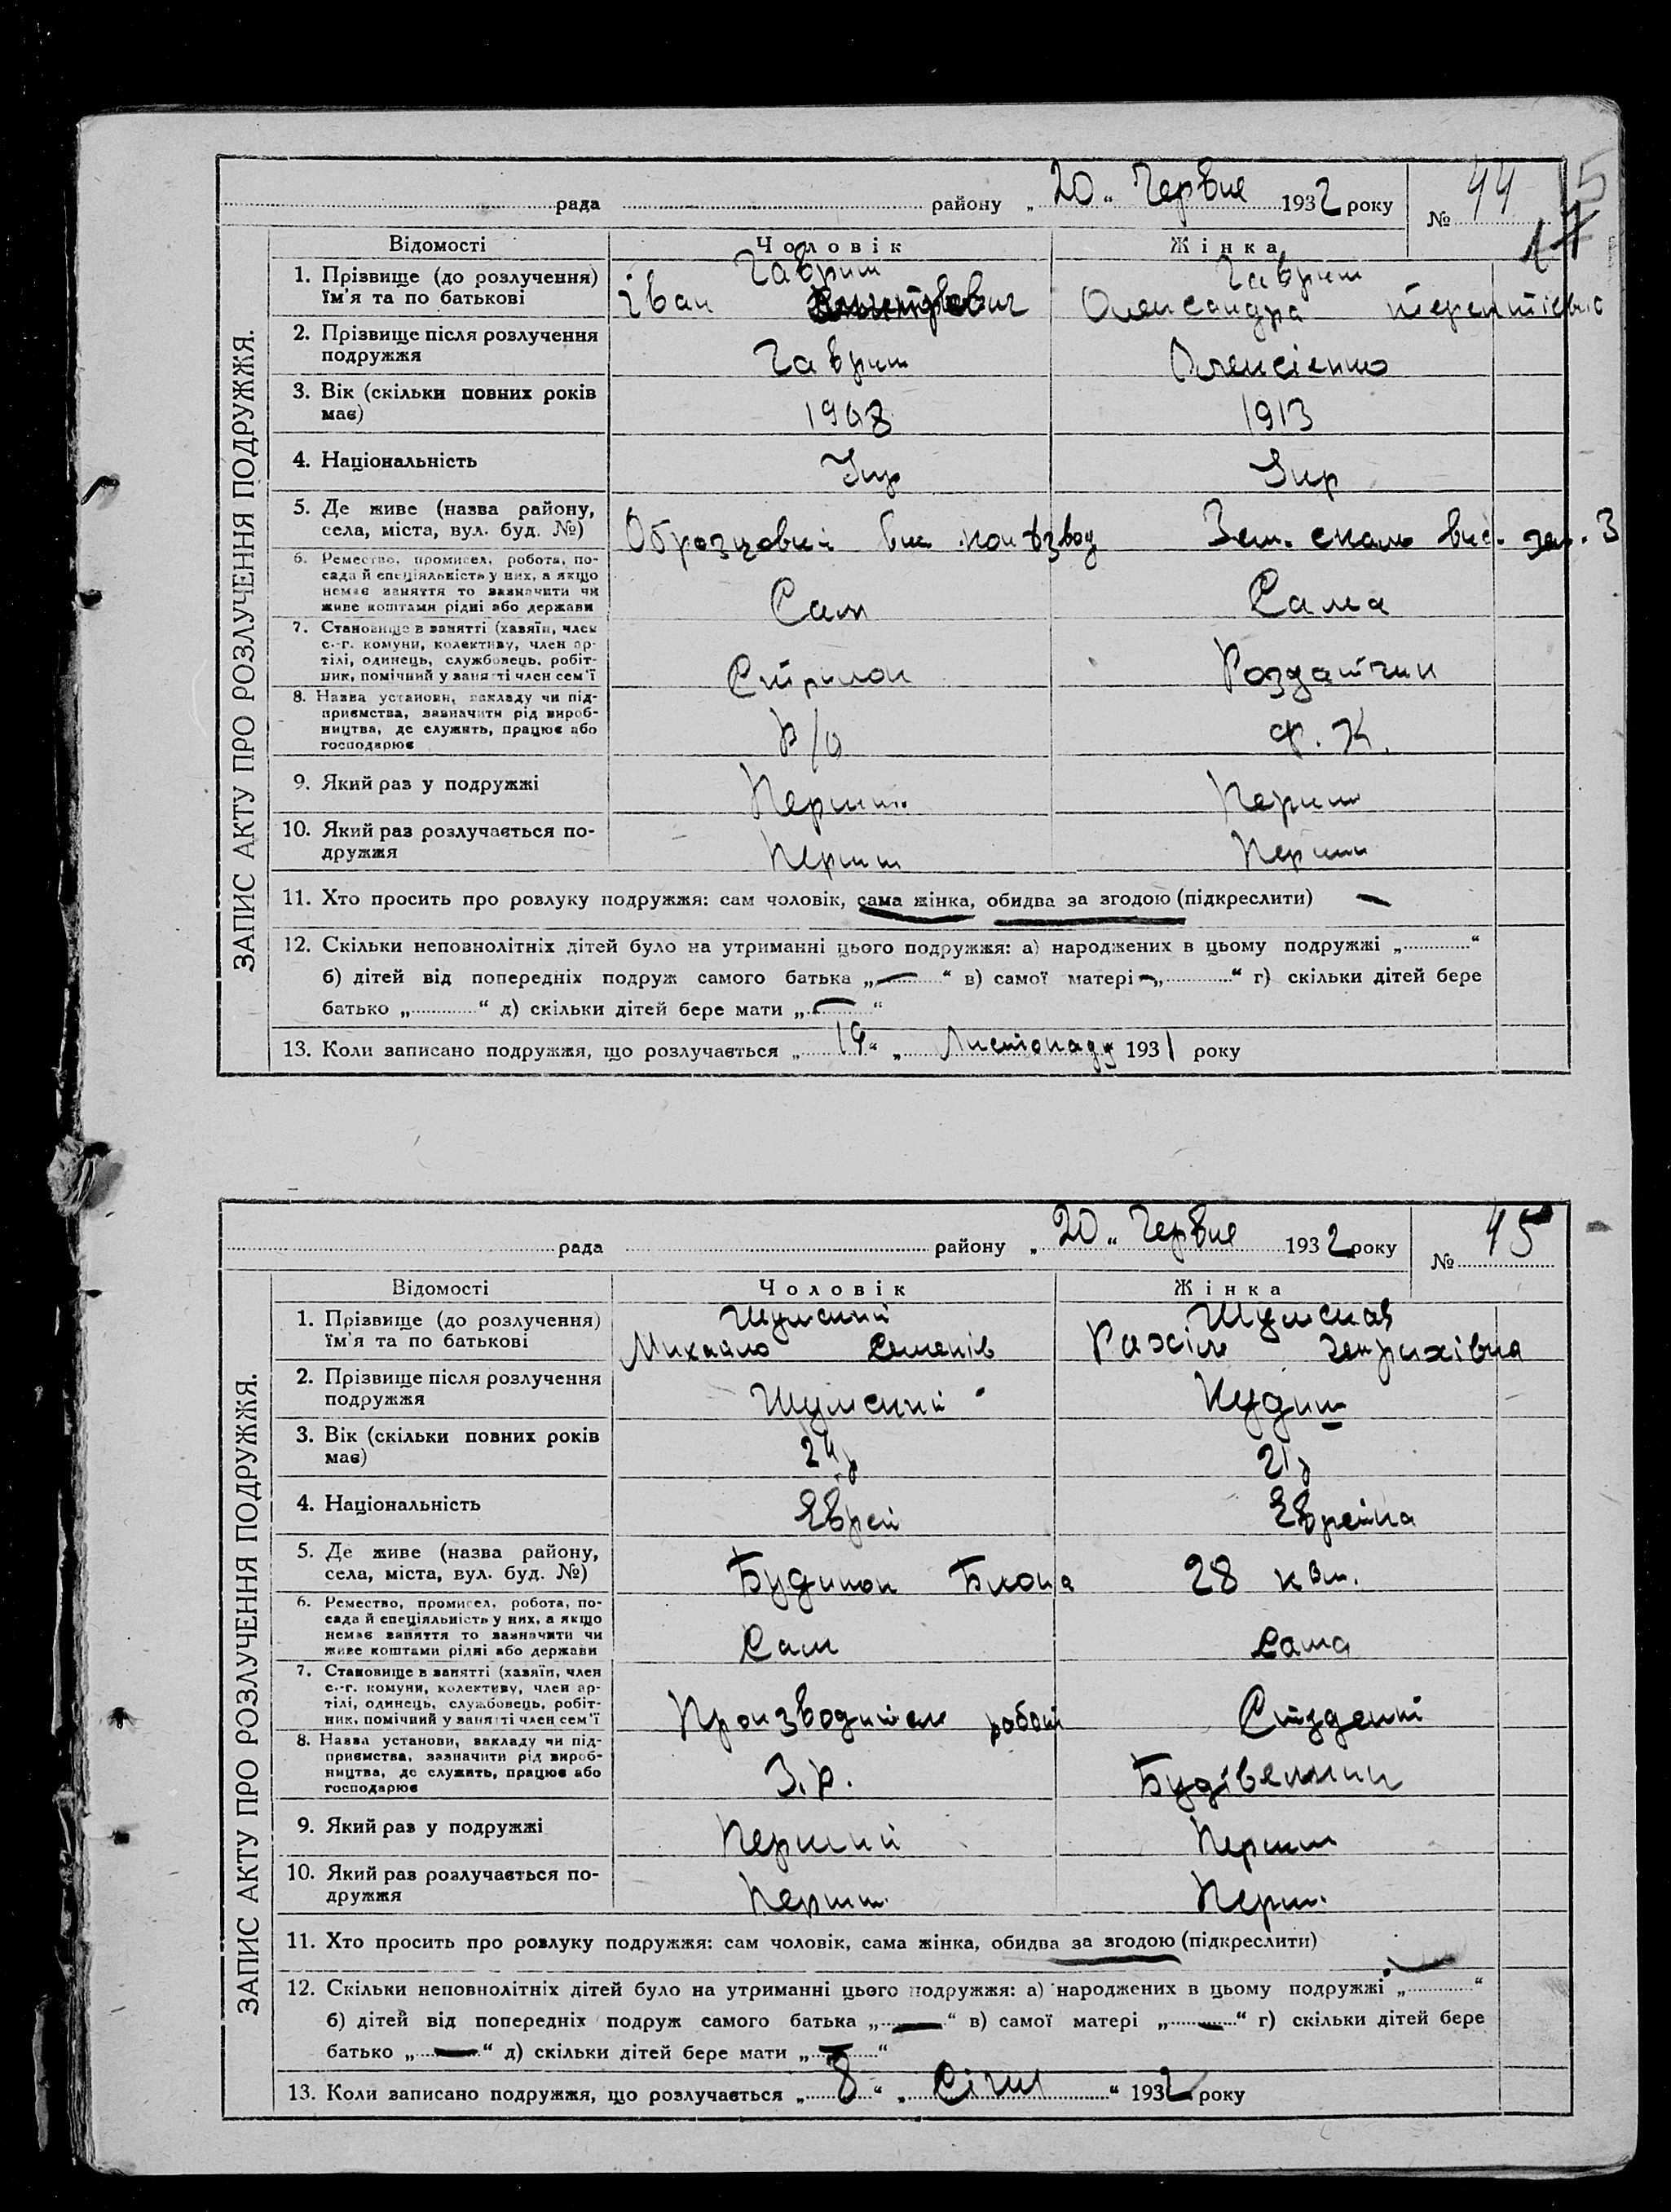 рада району „20“ Червня 1932 року № 44
5
17
ЗАПИС АКТУ ПРО РОЗЛУЧЕННЯ ПОДРУЖЖЯ.
Відомості Чоловік Жінка
1. Прізвище (до розлучення) Гавриш Гавриш
їм'я та по батькові Іван Олександра
2. Прізвище після розлучення
подружжя Гавриш Олексієнко
3. Вік (скільки повних років
має) 1908 1913
4. Національність Укр Укр
5. Де живе (назва району,
села, міста, вул. буд. №) Образцовий
6. Ремество, промисел, робота, по-
сада й спеціяльність у них, а якщо
немає заняття то зазначити чи
живе коштами рідні або держави Сам Сама
7. Становище в занятті (хазяїн, член
с.-г. комуни, колективу, член ар-
тілі, одинець, службовець, робіт-
ник, помічний у занятті член сем'ї Стрилок Роздатчик
8. Назва установи, закладу чи під-
приємства, зазначити рід вироб-
ництва, де служить, працює або
господарює Ф. К.
9. Який раз у подружжі Перший Перш
10. Який раз розлучається по-
дружжя Перш Перш
11. Хто просить про розлуку подружжя: сам чоловік, сама жінка, обидва за згодою (підкреслити) —
12. Скільки неповнолітніх дітей було на утриманні цього подружжя: а) народжених в цьому подружжі „ “
б) дітей від попередніх подруж самого батька „—“ в) самої матері —„ “ г) скільки дітей бере
батько „ “ д) скільки дітей бере мати „—“
13. Коли записано подружжя, що розлучається „19“ „Листопаду 1931 року
рада району „20“ Червня 1932 року № 45
ЗАПИС АКТУ ПРО РОЗЛУЧЕННЯ ПОДРУЖЖЯ.
Відомості Чоловік Жінка
1. Прізвище (до розлучення) Шумський Шумская
їм'я та по батькові Михайло Семенів Рахіль Генрихівна
2. Прізвище після розлучення
подружжя Шумский Кудиш
3. Вік (скільки повних років
має) 24 р 21 р
4. Національність Еврей Еврейка
5. Де живе (назва району,
села, міста, вул. буд. №) Будинок Блока 28 кв.
6. Ремество, промисел, робота, по-
сада й спеціяльність у них, а якщо
немає заняття то зазначити чи
живе коштами рідні або держави Сам Сама
7. Становище в занятті (хазяїн, член
с.-г. комуни, колективу, член ар-
тілі, одинець, службовець, робіт-
ник, помічний у занятті член сем'ї Производитель работ Студент
8. Назва установи, закладу чи під-
приємства, зазначити рід вироб-
ництва, де служить, працює або
господарює З.р. Будівельник
9. Який раз у подружжі Перший Перш
10. Який раз розлучається по-
дружжя Перш Перш.
11. Хто просить про розлуку подружжя: сам чоловік, сама жінка, обидва за згодою (підкреслити)
12. Скільки неповнолітніх дітей було на утриманні цього подружжя: а) народжених в цьому подружжі „—“
б) дітей від попередніх подруж самого батька „—“ в) самої матері „—“ г) скільки дітей бере
батько „—“ д) скільки дітей бере мати „—“
13. Коли записано подружжя, що розлучається „8“ „Січня“ 1932 року